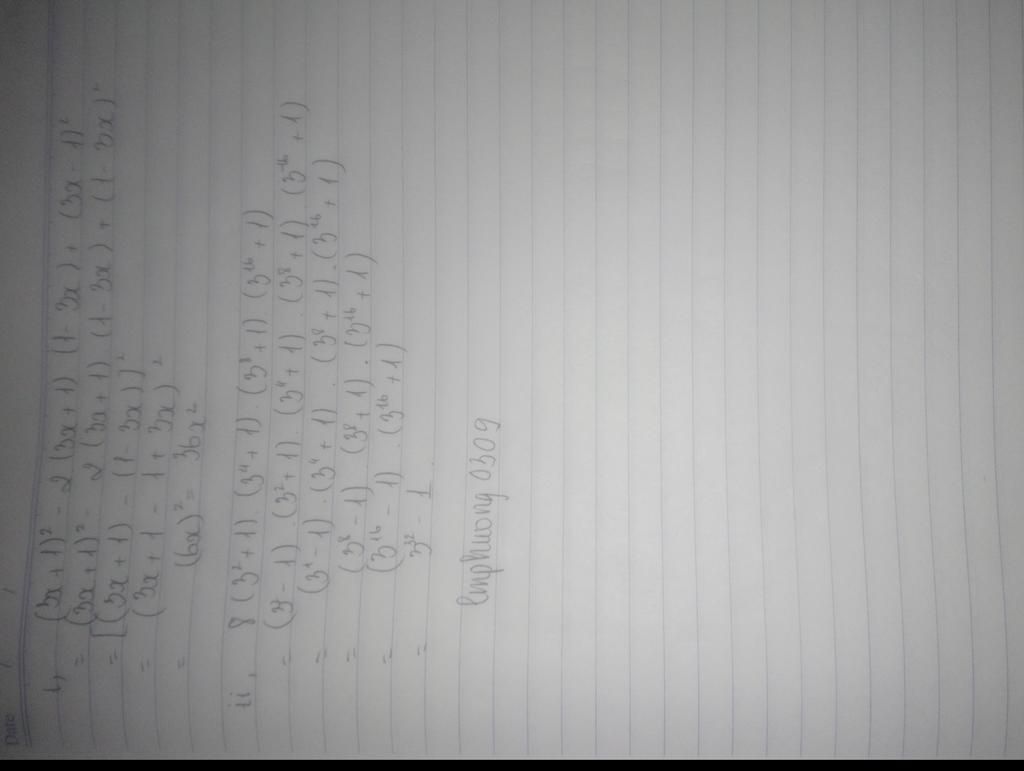 Date / /
i, (3x+1)² - 2 (3x+1) (1-3x) + (3x-1)²
= (3x+1)² - 2 (3x+1) (1-3x) + (1-3x)²
= [(3x+1) - (1-3x)]²
= (3x+1 - 1 + 3x)²
= (6x)² = 36x²
ii, 8 (3²+1) . (3⁴+1) . (3⁸+1) . (3¹⁶+1)
= (3² - 1) . (3²+1) . (3⁴+1) . (3⁸+1) . (3¹⁶+1)
= (3⁴-1) . (3⁴+1) . (3⁸+1) . (3¹⁶+1)
= (3⁸-1) (3⁸+1) . (3¹⁶+1)
= (3¹⁶ - 1) . (3¹⁶+1)
= 3³² - 1
lmphuong 0309